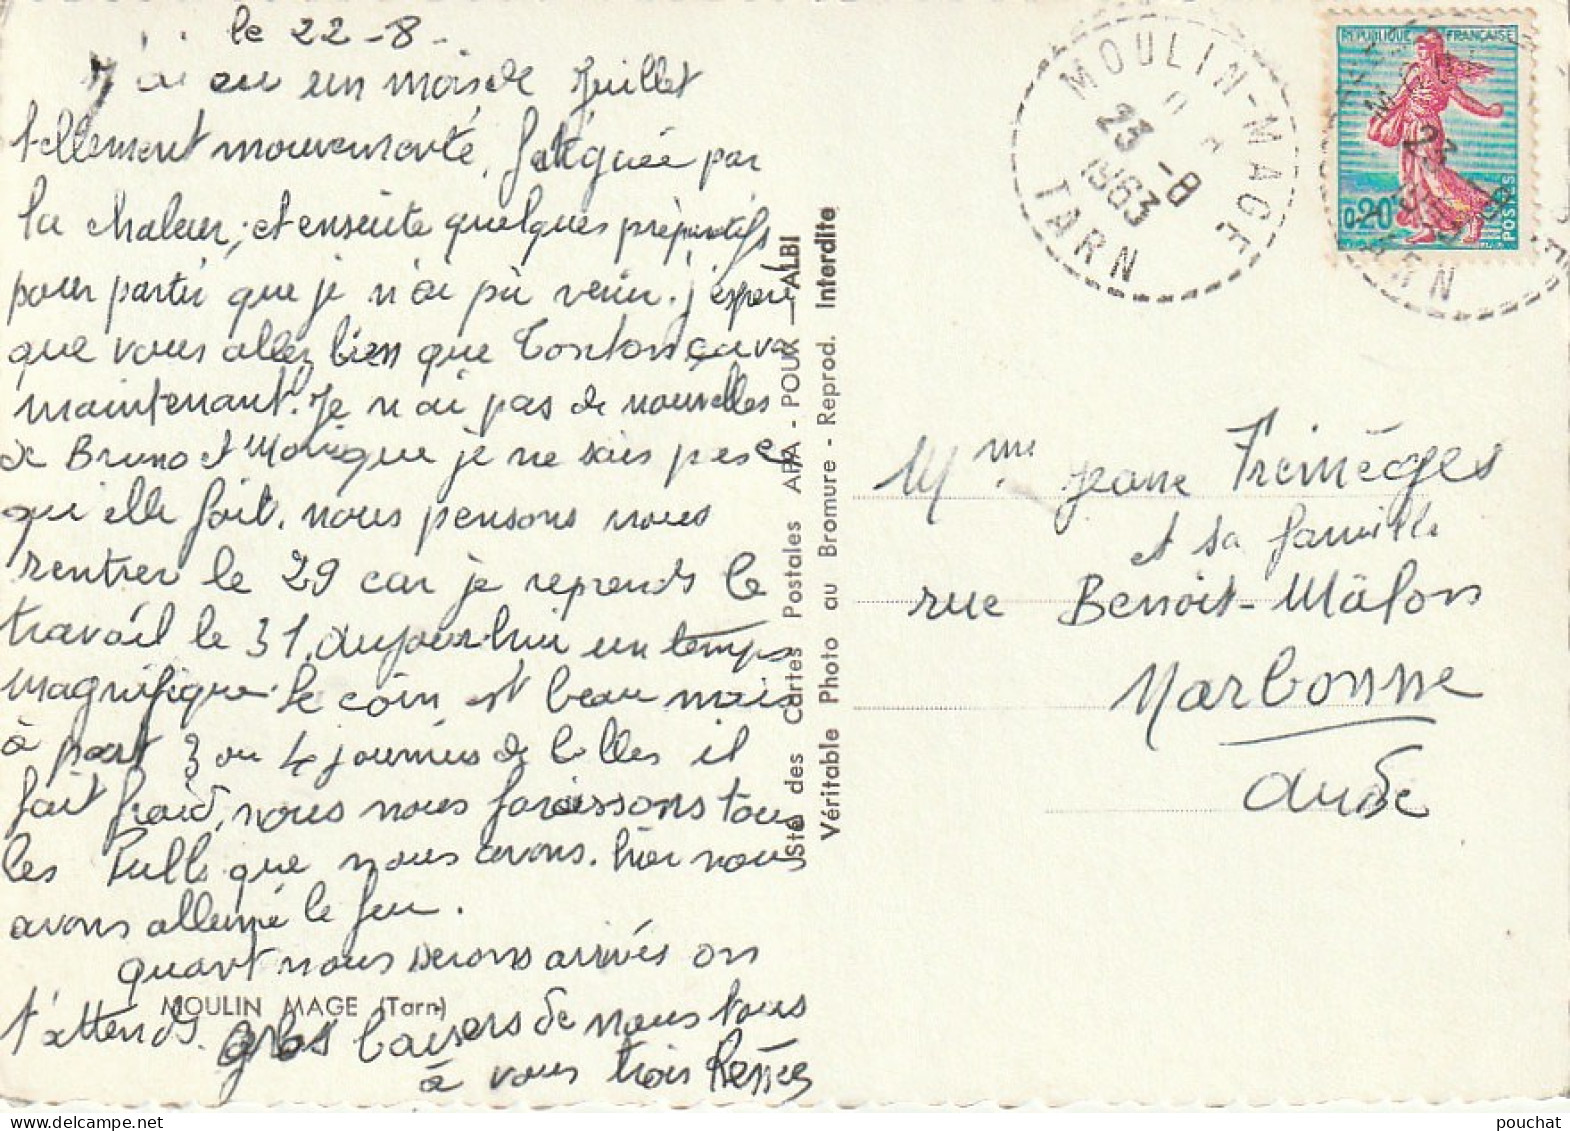 le 22-8-
J'ai eu un mois de Juillet
tellement mouvementé, fatiguée par
la chaleur, et ensuite quelques préparatifs
pour partir que je n'ai pu venir. j'espère
que vous allez bien que Tonton ça va
maintenant. Je n'ai pas de nouvelles
de Bruno et Monique je ne sais pas ce
qu'elle fait. nous pensons nous
rentrer le 29 car je reprends le
travail le 31. aujourd'hui un temps
magnifique. le coin est beau mais
à part 3 ou 4 journées de belles il
fait froid, nous nous faraissons tous
les Pulls que nous avons. hier nous
avons allumé le feu.
quant nous serons arrivés on
t'attends. gros baisers de nous tous
à vous trois Renée
MOULIN MAGE (Tarn)
Sté des Cartes Postales APA - POUX — ALBI
Véritable Photo au Bromure - Reprod. Interdite
MOULIN-MAGE
23-8
1963
TARN
REPUBLIQUE FRANÇAISE
0,20
POSTES
Mme Jeane Fremèges
et sa famille
rue Benoit-Mâlon
Narbonne
Aude
pouchat